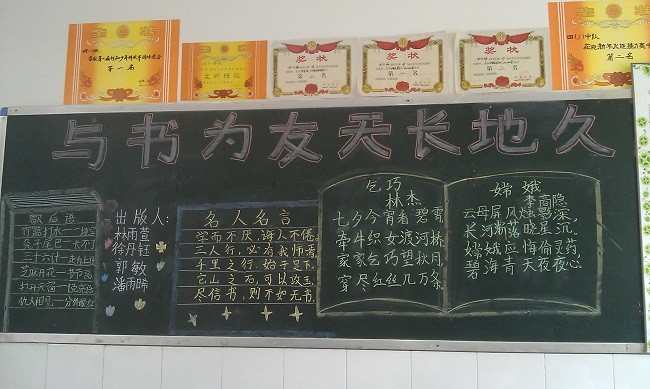 第一名
奖状
奖状
奖状
四(1)中队
第二名
与书为友天长地久
歇后语
竹篮打水——一场空
兔子尾巴——长不了
三十六计——走为上计
芝麻开花——节节高
仇人相见——分外眼红
出版人:
林雨萱
徐丹钰
郭敏
潘雨晞
名人名言
学而不厌,诲人不倦。
三人行,必有我师焉。
千里之行,始于足下。
它山之石,可以攻玉。
尽信书,则不如无书。
乞巧
林杰
七夕今宵看碧霄
牵牛织女渡河桥
家家乞巧望秋月
穿尽红丝几万条
嫦娥
李商隐
云母屏风烛影深,
长河渐落晓星沉.
嫦娥应悔偷灵药,
碧海青天夜夜心.